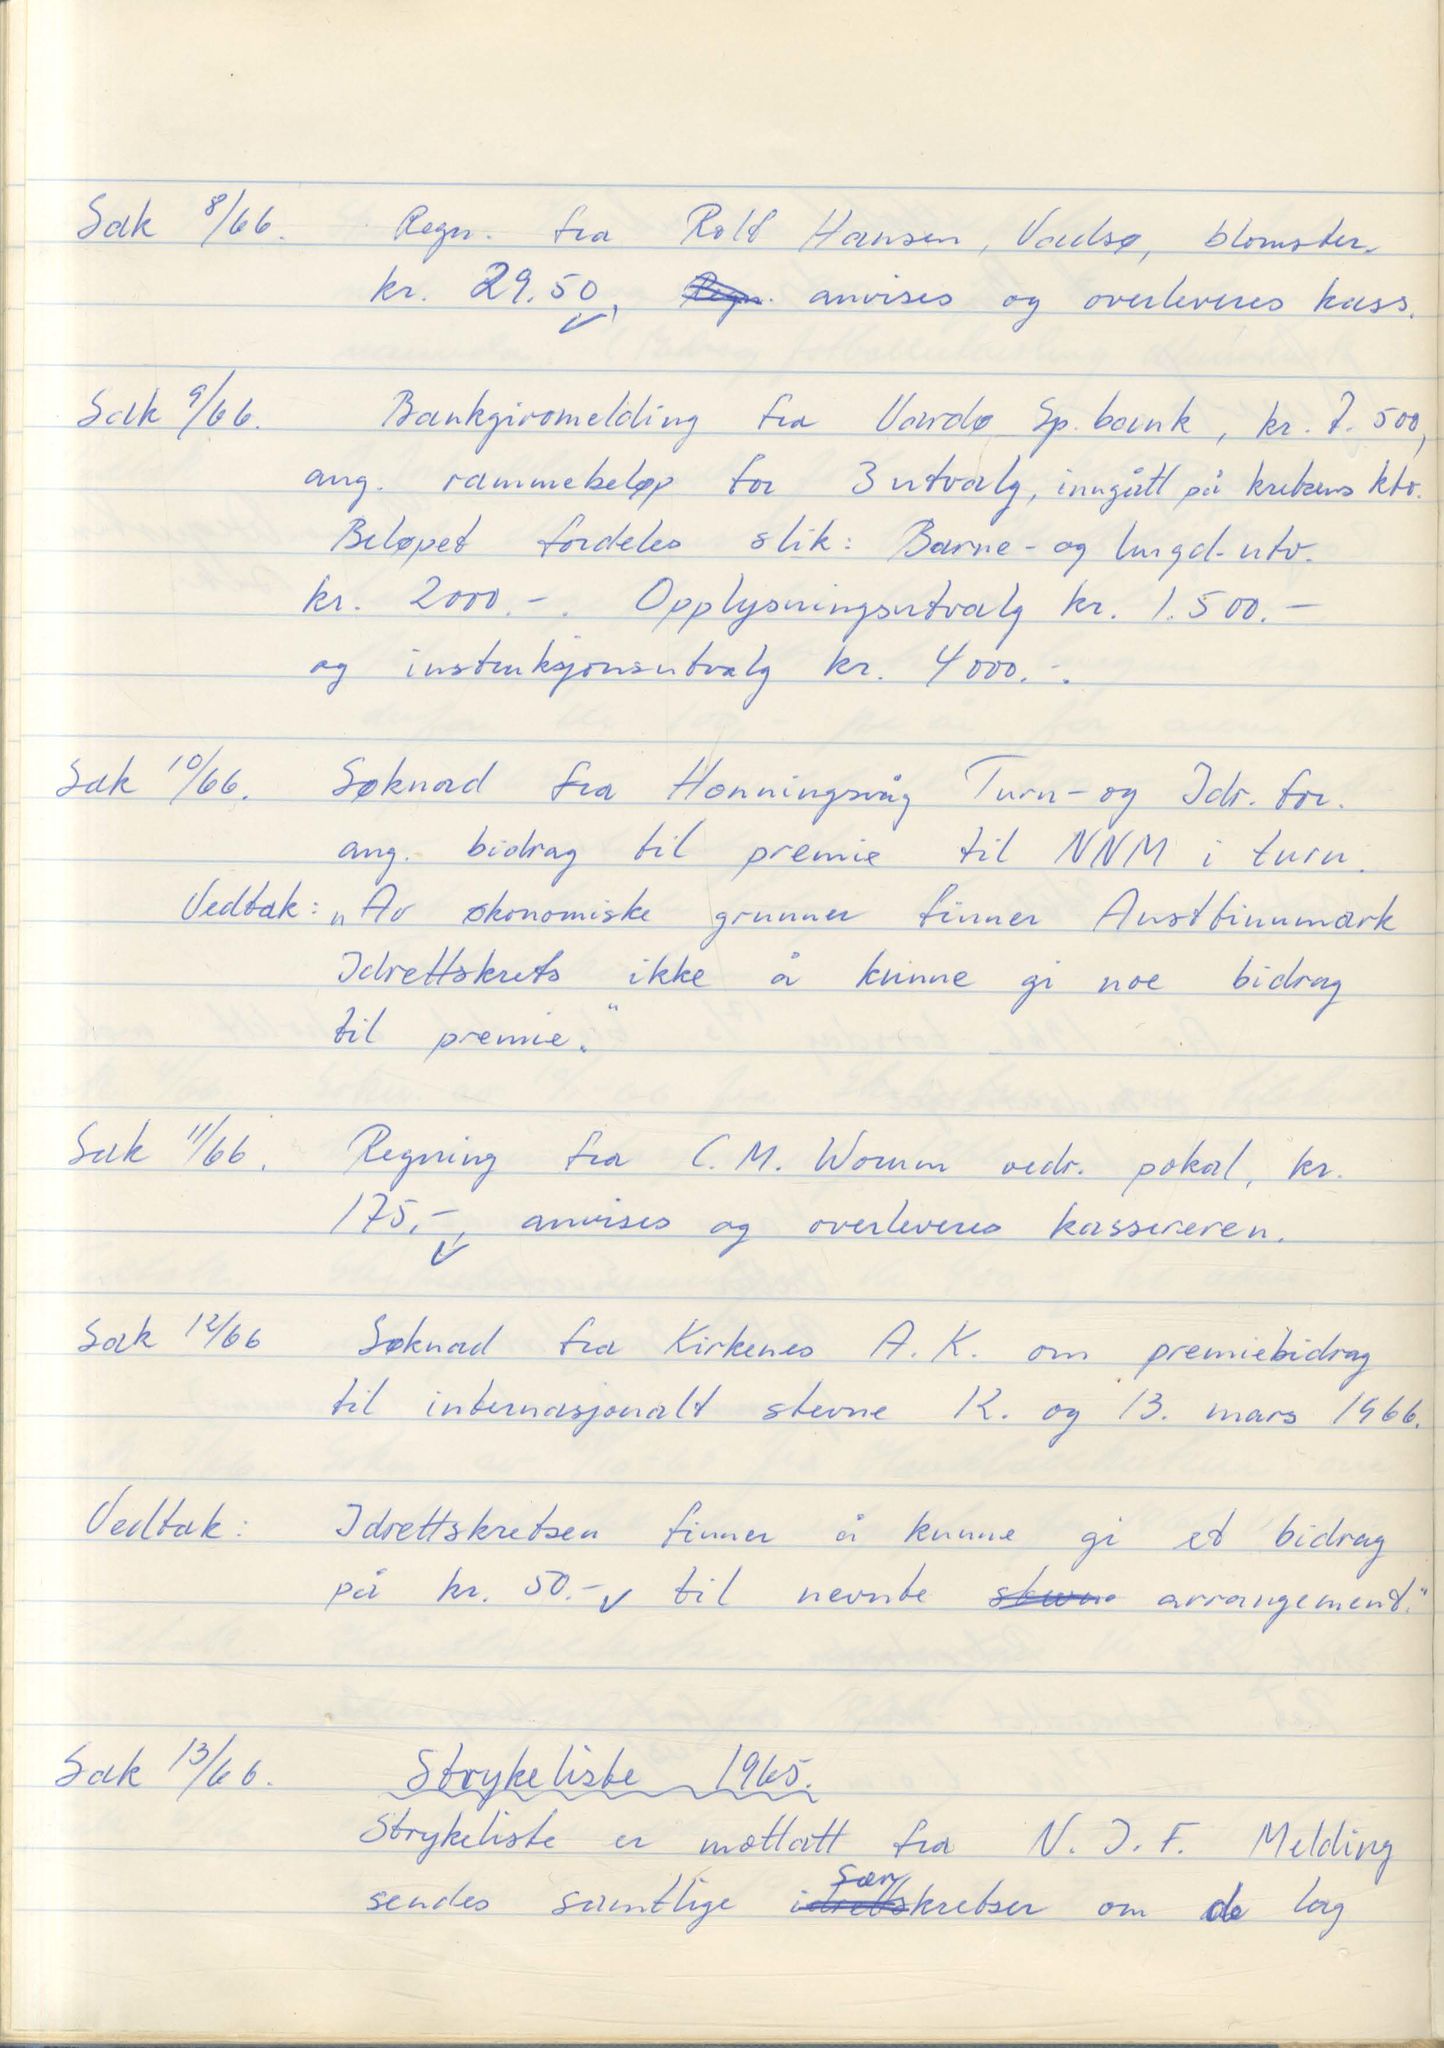 Sak 8/66. Regn. fra Rolf Hansen, Vadsø, blomster.
kr. 29.50, Regn. anvises og overleveres kass.
Sak 9/66. Bankgiromelding fra Vardø Sp.bank, kr. 7.500,
ang. rammebeløp for 3 utvalg, inngått på kretsens kto.
Beløpet fordeles slik: Barne- og Ungd-utv.
kr. 2000.-. Opplysningsutvalg kr. 1.500.-
og instruksjonsutvalg kr. 4000.-.
Sak 10/66. Søknad fra Honningsvåg Turn- og Idr. for.
ang. bidrag til premie til NNM i turn.
Vedtak: „Av økonomiske grunner finner Austfinnmark
Idrettskrets ikke å kunne gi noe bidrag
til premie."
Sak 11/66. Regning fra C. M. Worum vedr. pokal, kr.
175,-, anvises og overleveres kassereren.
Sak 12/66 Søknad fra Kirkenes A.K. om premiebidrag
til internasjonalt stevne 12. og 13. mars 1966.
Vedtak: Idrettskretsen finner å kunne gi et bidrag
på kr. 50.- til nevnte stevne arrangement."
Sak 13/66. Strykeliste 1965.
Strykeliste er mottatt fra N.I.F. Melding
sær
sendes samtlige idrettskretser om de lag